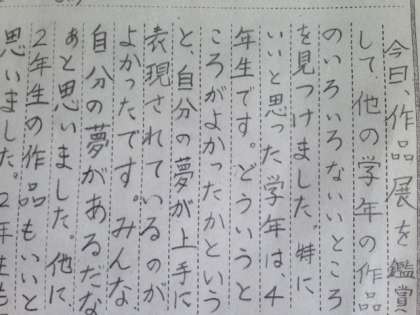 今日、作品展を鑑賞
して、他の学年の作品
のいろいろないいところ
を見つけました。特に
いいと思った学年は、4
年生です。どういうと
ころがよかったかという
と、自分の夢が上手に
表現されているのが
よかったです。みんな
自分の夢があるだな
あと思いました。他に
2年生の作品もいいと
思いました。2年生も